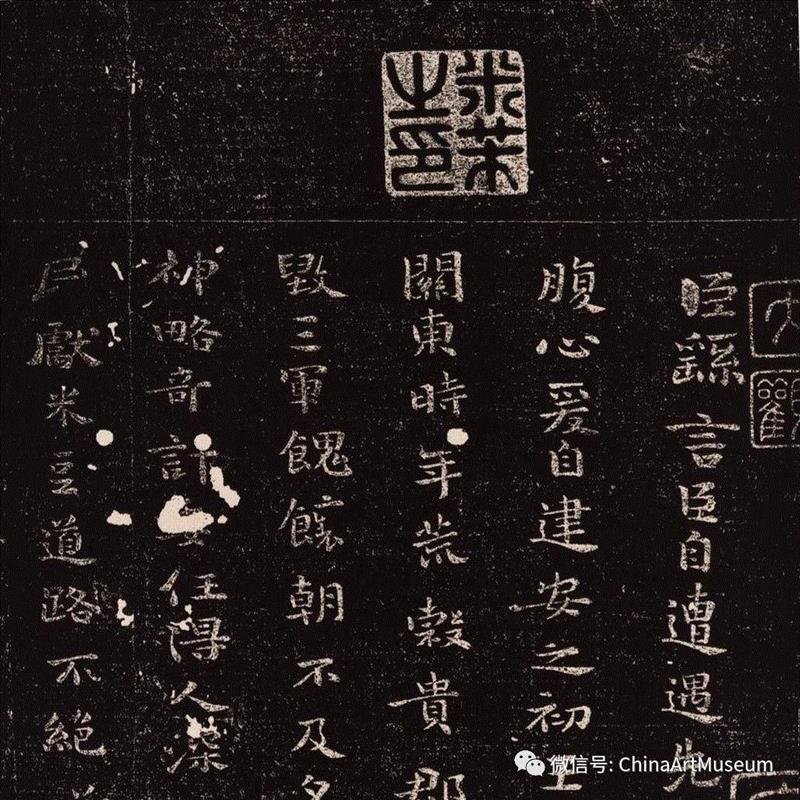 米芾之印
大觀
臣繇言臣自遭遇先
腹心爰自建安之初王
關東時年荒穀貴郡
毀三軍餽饟朝不及夕
神略奇計任得人深
民獻米豆道路不絕
微信号: ChinaArtMuseum